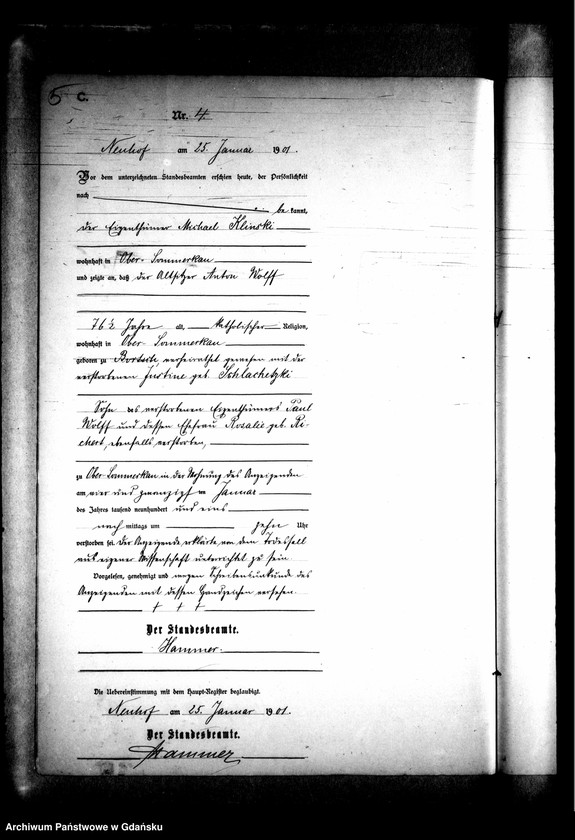 5
C.
Nr. 4
Neuhof am 25. Januar 1901.
Vor dem unterzeichneten Standesbeamten erschien heute, der Persönlichkeit
nach
be kannt,
der Eigenthümer Michael Klinski
wohnhaft in Ober-Sommerkau
und zeigte an, daß der Altsitzer Anton Wolff
76½ Jahre alt, katholischer Religion,
wohnhaft in Ober-Sommerkau
geboren zu verheirathet gewesen mit der
verstorbenen Justine geb. Schlachetzki
Sohn des verstorbenen Eigenthümers Paul
Wolff und dessen Ehefrau Rosalie geb. Ri-
chert, ebenfalls verstorben,
zu Ober-Sommerkau in der Wohnung des Anzeigenden
am vier und zwanzigsten Januar
des Jahres tausend neunhundert und eins
nach mittags um zehn Uhr
verstorben sei. Der Anzeigende erklärte, von dem Todesfall
aus eigener Wissenschaft unterrichtet zu sein.
Vorgelesen, genehmigt und wegen Schreibensunkunde des
Anzeigenden mit dessen Handzeichen versehen.
† † †
Der Standesbeamte.
Hammer.
Die Uebereinstimmung mit dem Haupt-Register beglaubigt.
Neuhof am 25. Januar 1901.
Der Standesbeamte.
Hammer
Archiwum Państwowe w Gdańsku